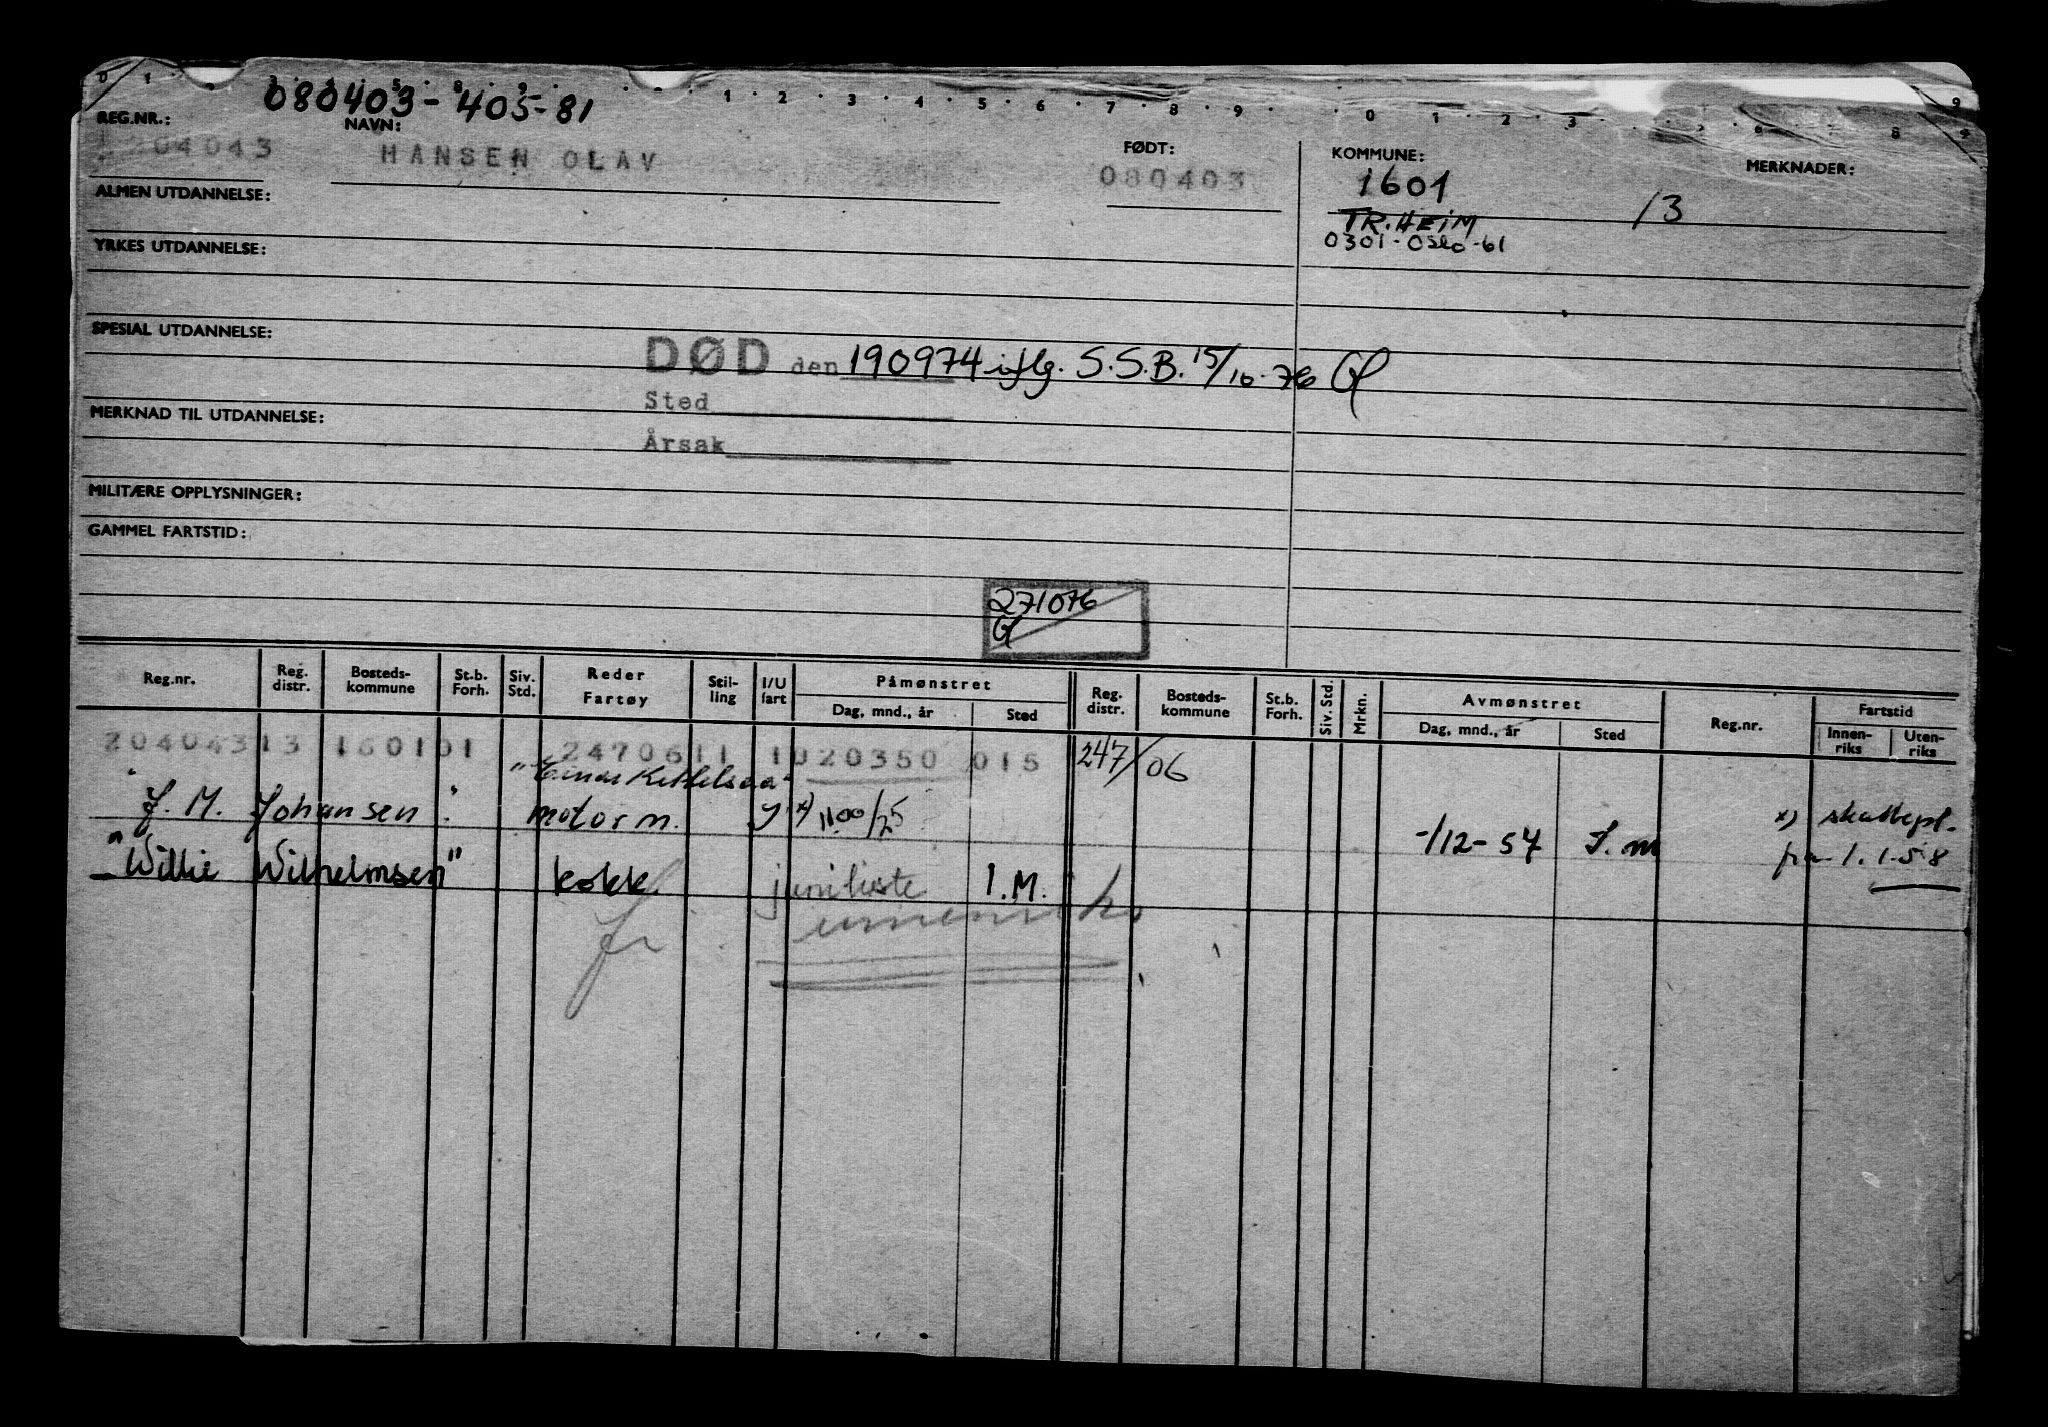 080403-405-81
REG.NR.: NAVN: FØDT: KOMMUNE: MERKNADER:
204043 HANSEN OLAV 080403 1601
TR.HEIM /3
0301-Oslo-61
ALMEN UTDANNELSE:
YRKES UTDANNELSE:
SPESIAL UTDANNELSE:
DØD den 190974 iflg. S.S.B. 15/10-76
Sted
MERKNAD TIL UTDANNELSE:
Årsak
MILITÆRE OPPLYSNINGER:
GAMMEL FARTSTID:
271076
Reg.nr. Reg. distr. Bosteds-kommune St.b. Forh. Siv. Std. Reder Fartøy Stil-ling I/U fart Påmønstret Dag, mnd., år Sted Reg. distr. Bosteds-kommune St.b. Forh. Siv. Std. Mrkn. Avmønstret Dag, mnd., år Sted Reg.nr. Fartstid Innen-riks Uten-riks
204043 13 160101 2470611 1020350 015 247/06
"J. M. Johansen" motorm. x) 1100/25 -/12-57 S.m x) skattepl.
fra 1.1.58
"Willie Wilhelmsen" kokk juniliste I.M.